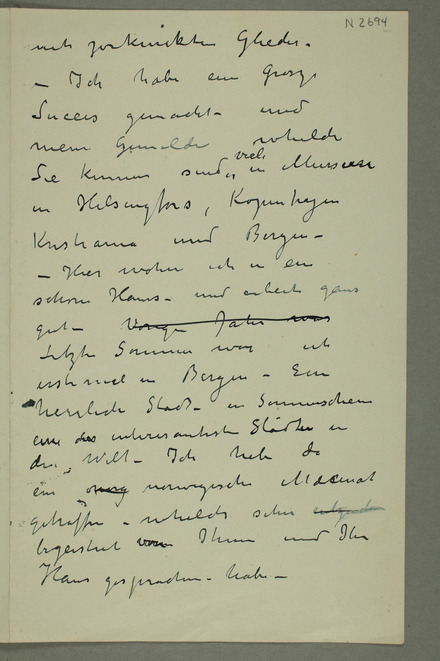 N 2694
mit zerknickten Glieder –
– Ich habe ein Grosze
Succes gemacht – und
mein Gemälde whelde
Sie kennen sind, viele in Museen
in Helsingfors, Kopenhagen
Kristiania und Bergen –
– Hier wohne ich in ein
schön Haus – und arbeite ganz
gut – Vorige Jahr war
Letzte Sommer war ich
erstemal in Bergen – Eine
herrliche Stadt – in Sonnenschein
eine des interesanteste Städten in
die Welt – Ich habe da
ein norweg norwegische Mæcenat
getroffen – whelde sehr
begeistert von Ihnen und Ihr
Haus gesprochen – habe –